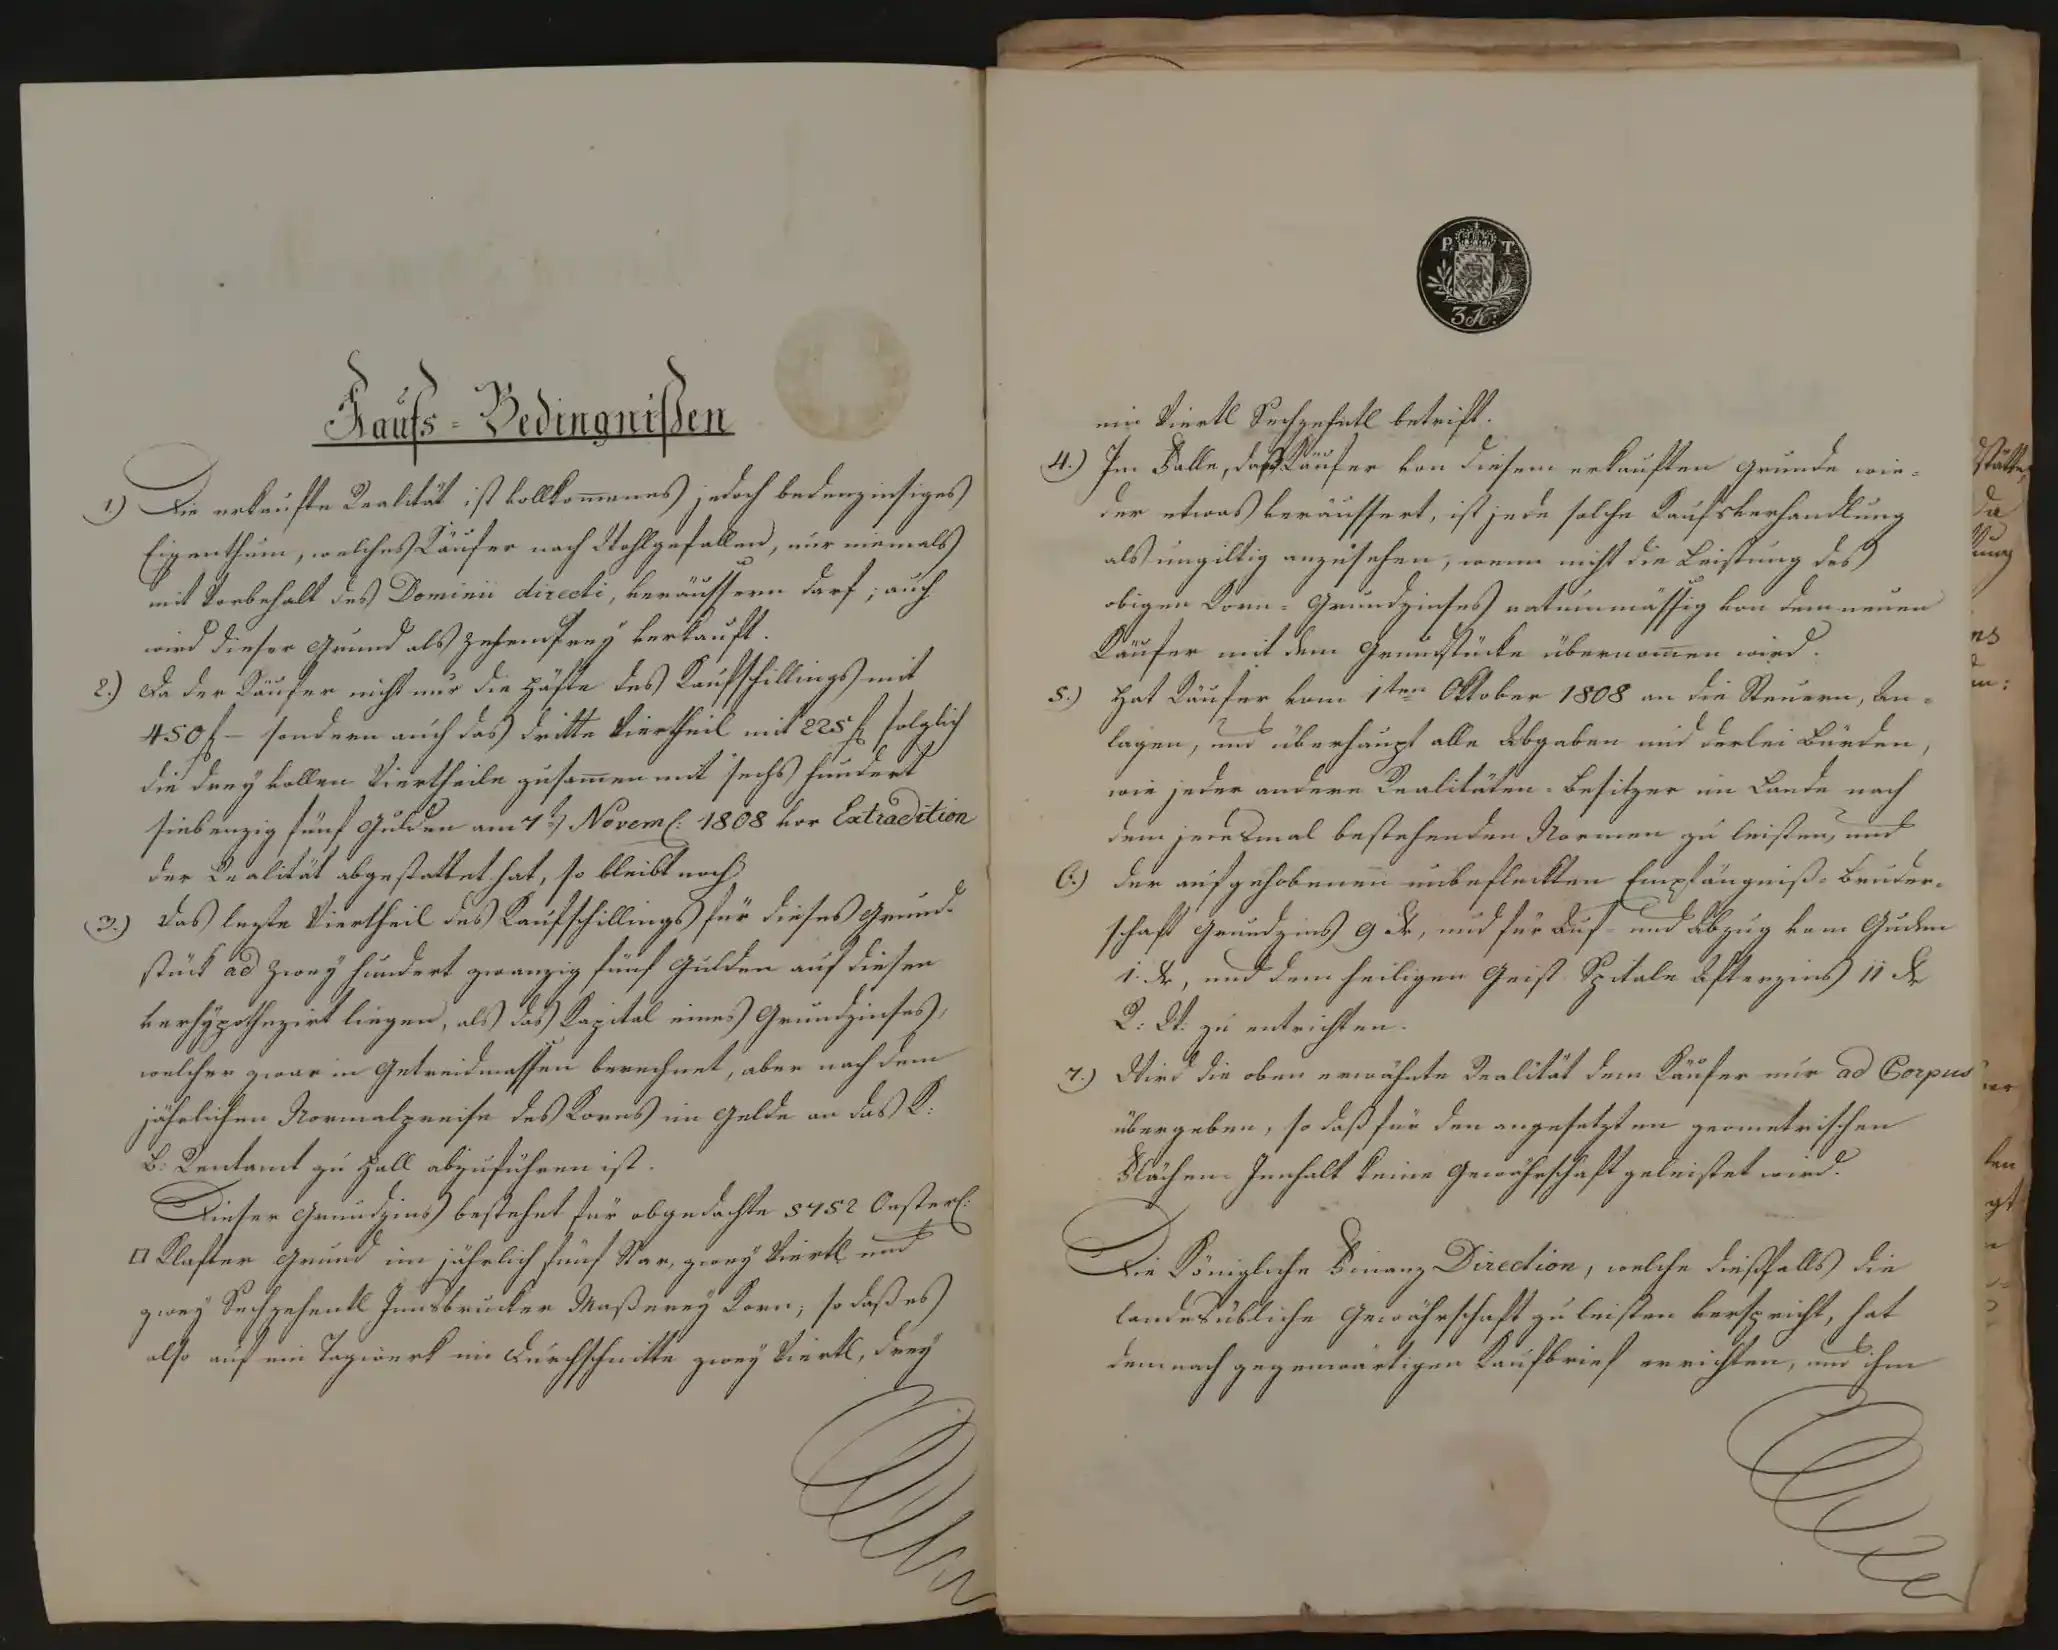 Kaufs-Bedingnißen
1.) Die erkaufte Realität ist vollkom̅enes jedoch bodenzinsiges
Eigenthum, welches Käufer nach Wohlgefallen, nur niemals
mit Vorbehalt des Dominii directi, veräussern darf; auch
wird dieser Grund als zehendfrey verkauft.
2.) Da der Käufer nicht nur die Häfte des Kaufschillings mit
450 f – sondern auch das dritte Viertheil mit 225 f, folglich
die drey vollen Viertheile zusam̅en mit sechs hundert
siebenzig fünf Gulden am 7t Novemb: 1808 vor Extradition
der Realität abgestattet hat, so bleibt noch
3.) Das lezte Viertheil des Kaufschillings für dieses Grund-
stück ad zwey hundert zwanzig fünf Gulden auf diesen
verhypothezirt liegen, als das Kapital eines Grundzinses,
welcher zwar in Getreidmassen berechnet, aber nach dem
jährlichen Normalpreise des Korns im Gelde an das K:
B: Rentamt zu Hall abzuführen ist.
Dieser Grundzins bestehet für obgedachte 5752 Oesterl:
□ Klafter Grund im jährlich fünf Star, zwey Viertl und
zwey Sechzehentl Innsbrucker Maßerey Korn; so daß es
also auf ein Tagwerk im Durchschnitte zwey Viertl, drey
P. T.
3 Kr
ein Viertl Sechzehntl betrift.
4.) Im Falle, daß Käufer von diesem erkauften Grunde wie-
der etwas veräussert, ist jede solche Kaufsverhandlung
als ungiltig anzusehen, wenn nicht die Leistung des
obigen Korn-Grundzinses ratummässig von dem neuen
Käufer mit dem Grundstücke übernom̅en wird.
5.) Hat Käufer vom 1ten Oktober 1808 an die Steuern, An-
lagen, und überhaupt alle Abgaben und derlei Bürden,
wie jeder andere Realitäten-Besitzer im Lande nach
dem jedesmal bestehenden Normen zu leisten, und
6.) der aufgehobenen unbefleckten Empfängniß-Bruder-
schaft Grundzins 9 kr, und für Auf- und Abzug vom Gulden
1. kr, und dem heiligen Geist Spitale Afterzins 11 kr
R: W: zu entrichten.
7.) Wird die oben erwähnte Realität dem Käufer nur ad Corpus
übergeben, so daß für den angesetzten geometrischen
Flächen-Innhalt keine Gewährschaft geleistet wird.
Die Königliche Finanz Direction, welche dießfalls die
landesübliche Gewährschaft zu leisten verspricht, hat
demnach gegenwärtigen Kaufbrief errichten, und ihm